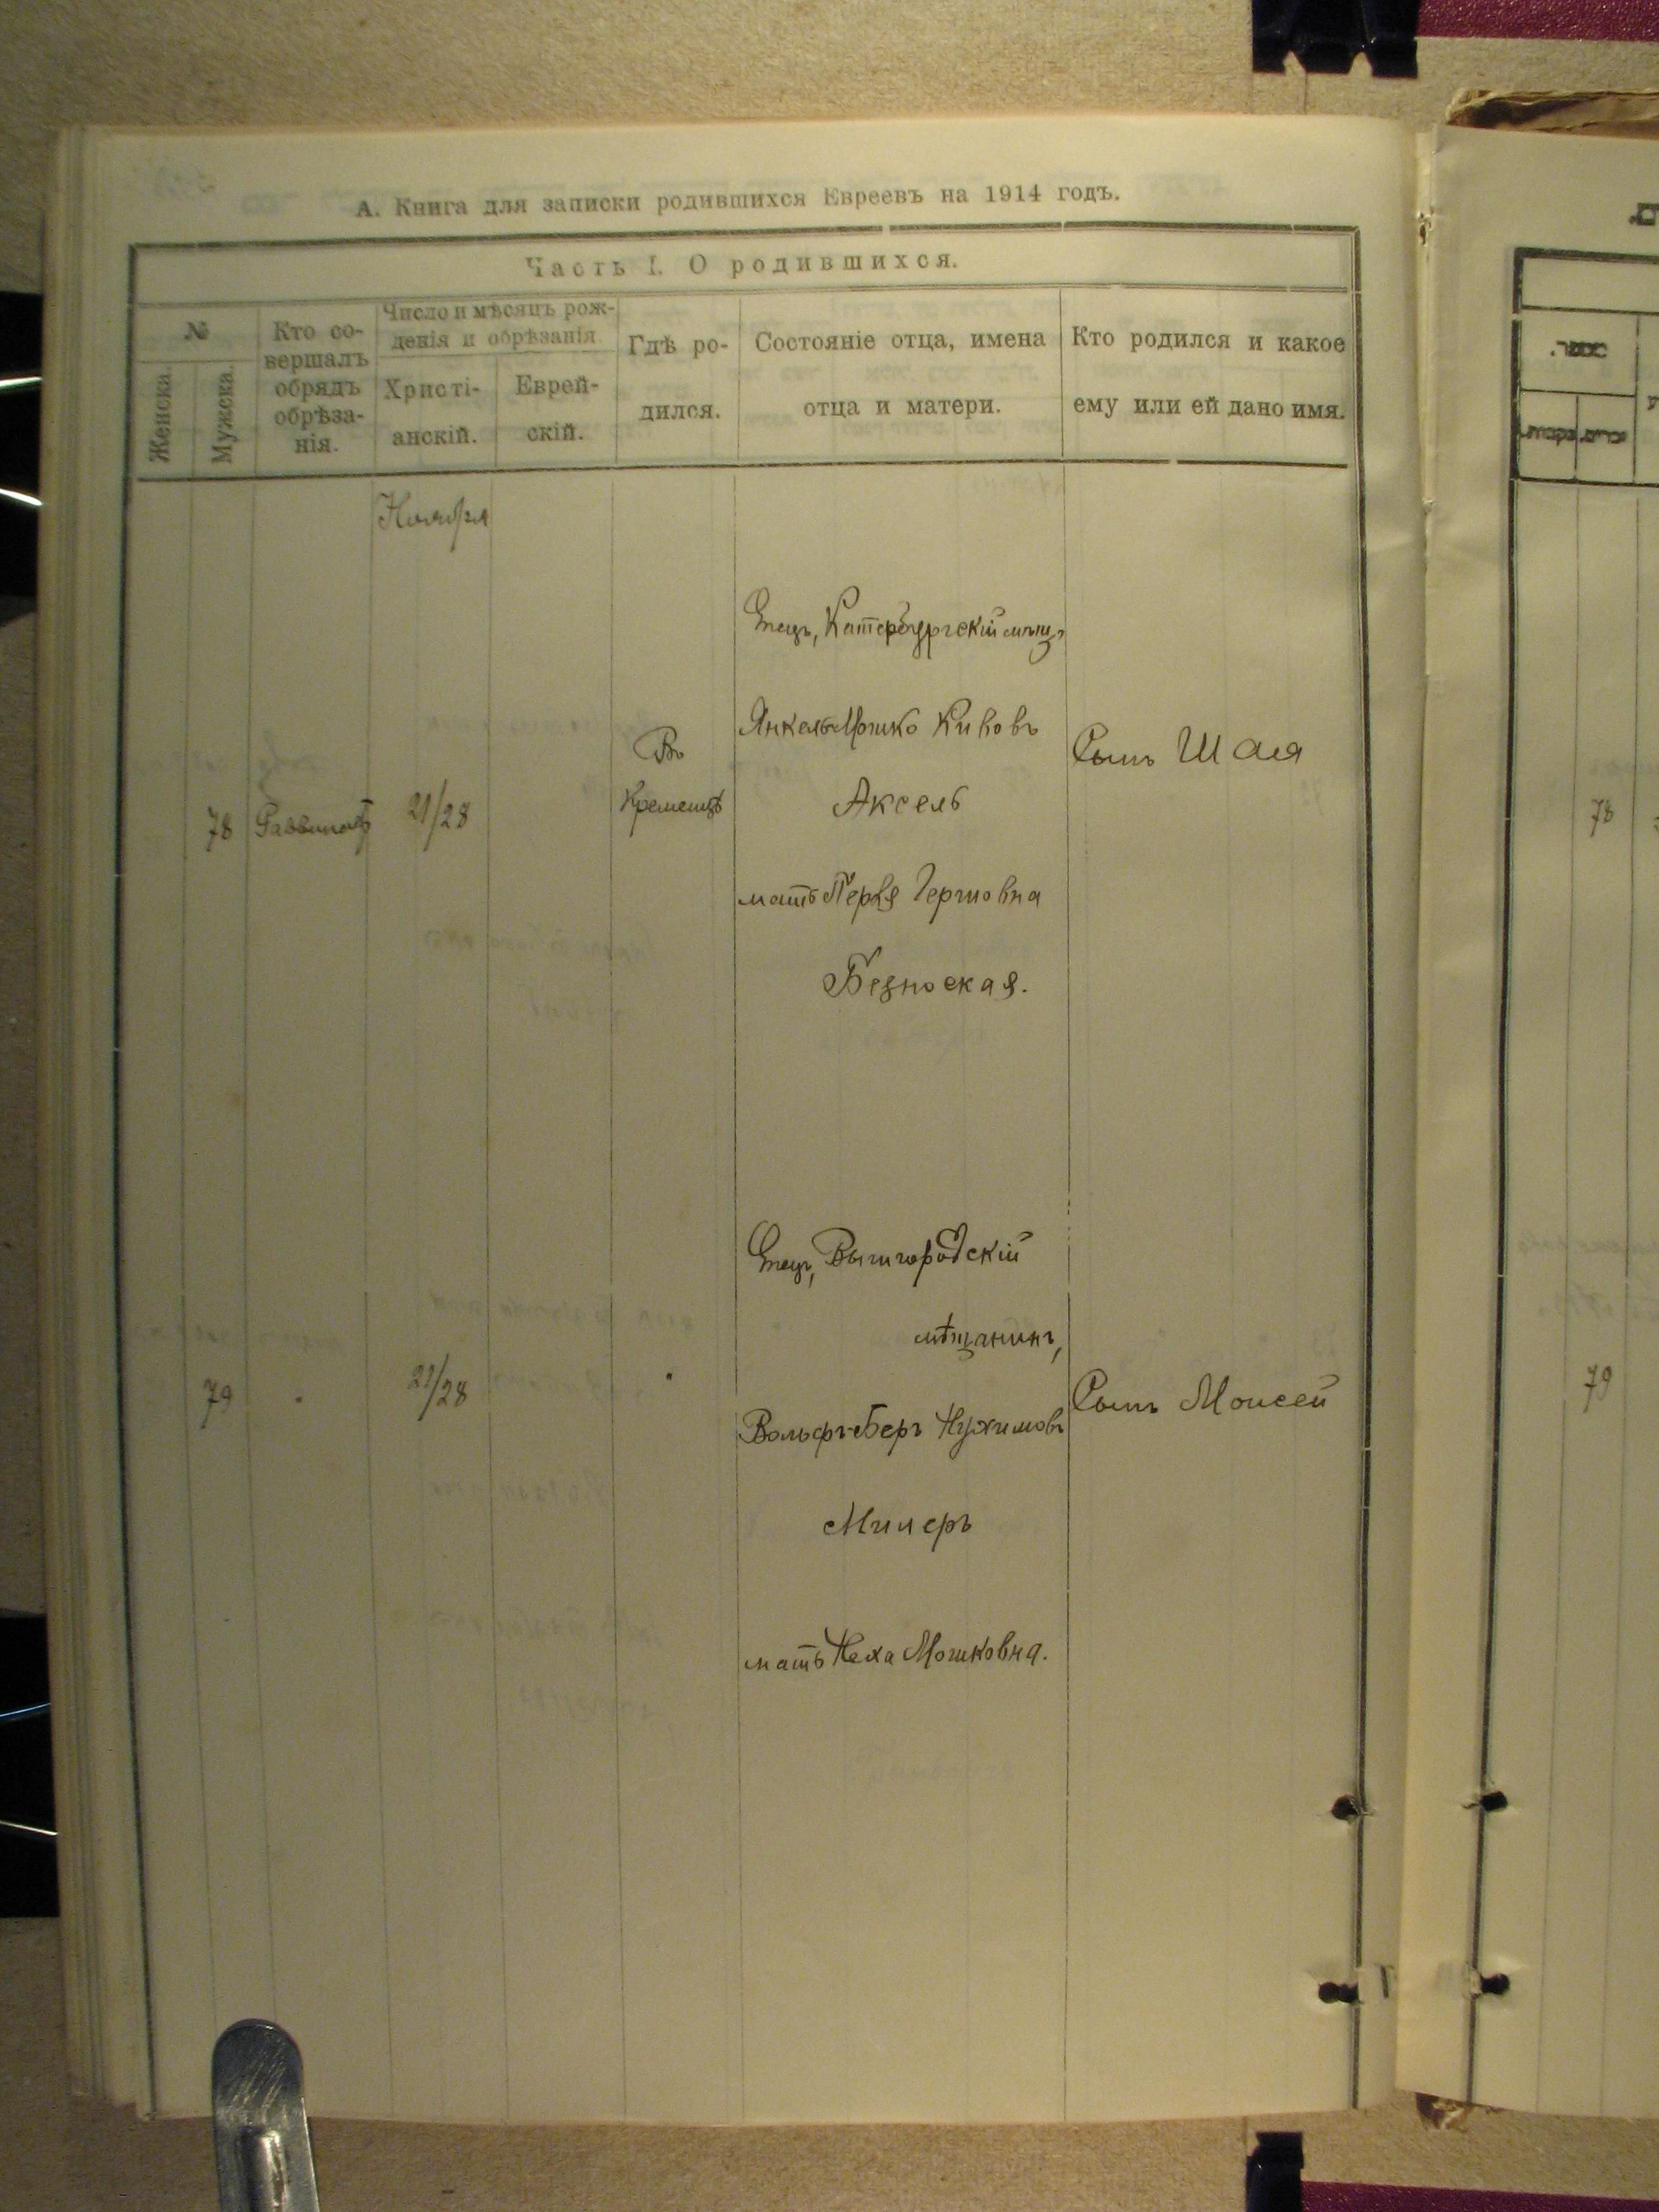 А. Книга для записки родившихся Евреевъ на 1914 годъ.
Часть I. О родившихся.
№
Женска.
Мужска.
Кто со-
вершалъ
обрядъ
обрѣза-
нія.
Число и мѣсяцъ рож-
денія и обрѣзанія.
Христі-
анскій.
Еврей-
скій.
Гдѣ ро-
дился.
Состояніе отца, имена
отца и матери.
Кто родился и какое
ему или ей дано имя.
Ноября
78
21/28
Въ
Кременцѣ
Отецъ, Катербургскій мѣщ.
Янкель-Мошко Кивовъ
Аксель
мать Перля
Безноская.
Сынъ Шая
78
79
21/28
"
Отецъ, Вышгородскій
мѣщанинъ,
Вольфъ-Беръ Нухимовъ
Милеръ
мать Неха Мошковна.
Сынъ Моисей
79